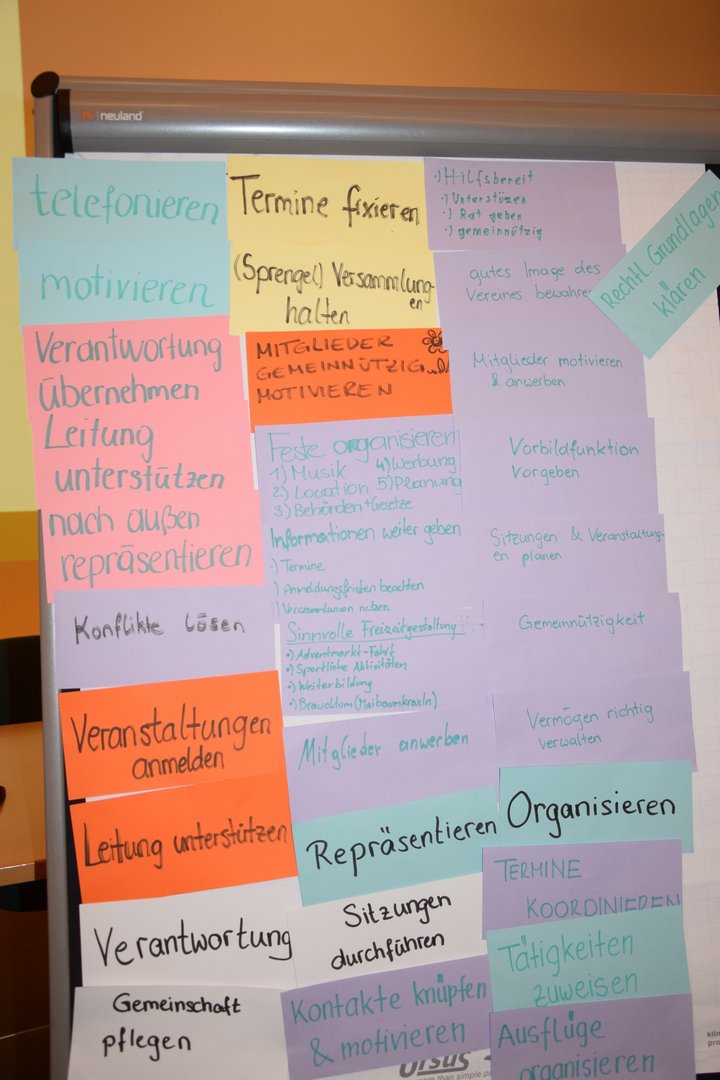 neuland
telefonieren
motivieren
Verantwortung
übernehmen
Leitung
unterstützen
nach außen
repräsentieren
Konflikte lösen
Veranstaltungen
anmelden
Leitung unterstützen
Verantwortung
Gemeinschaft
pflegen
Termine fixieren
(Sprengel) Versammlung-
en
halten
MITGLIEDER
GEMEINNÜTZIG
MOTIVIEREN
Feste organisieren
1) Musik 4) Werbung
2) Location 5) Planung
3) Behörden + Gesetze
Informationen weiter geben
·) Termine
·) Anmeldungsfristen beachten
·) Versammlungen nutzen
Sinnvolle Freizeitgestaltung
·) Adventmarkt-Fahrt
·) Sportliche Aktivitäten
·) Weiterbildung
·) Brauchtum (Maibaumkraxln)
Mitglieder anwerben
Repräsentieren
Sitzungen
durchführen
Kontakte knüpfen
& motivieren
Ursus
more than simple
·) Hilfsbereit
·) Unterstüzen
·) Rat geben
·) gemeinnützig
gutes Image des
Vereines bewahren
Mitglieder motivieren
& anwerben
Vorbildfunktion
Vorgeben
Sitzungen & Veranstaltung-
en planen
Gemeinnützigkeit
Vermögen richtig
verwalten
Organisieren
TERMINE
KOORDINIEREN
Tätigkeiten
zuweisen
Ausflüge
organisieren
Rechtl. Grundlagen
klären